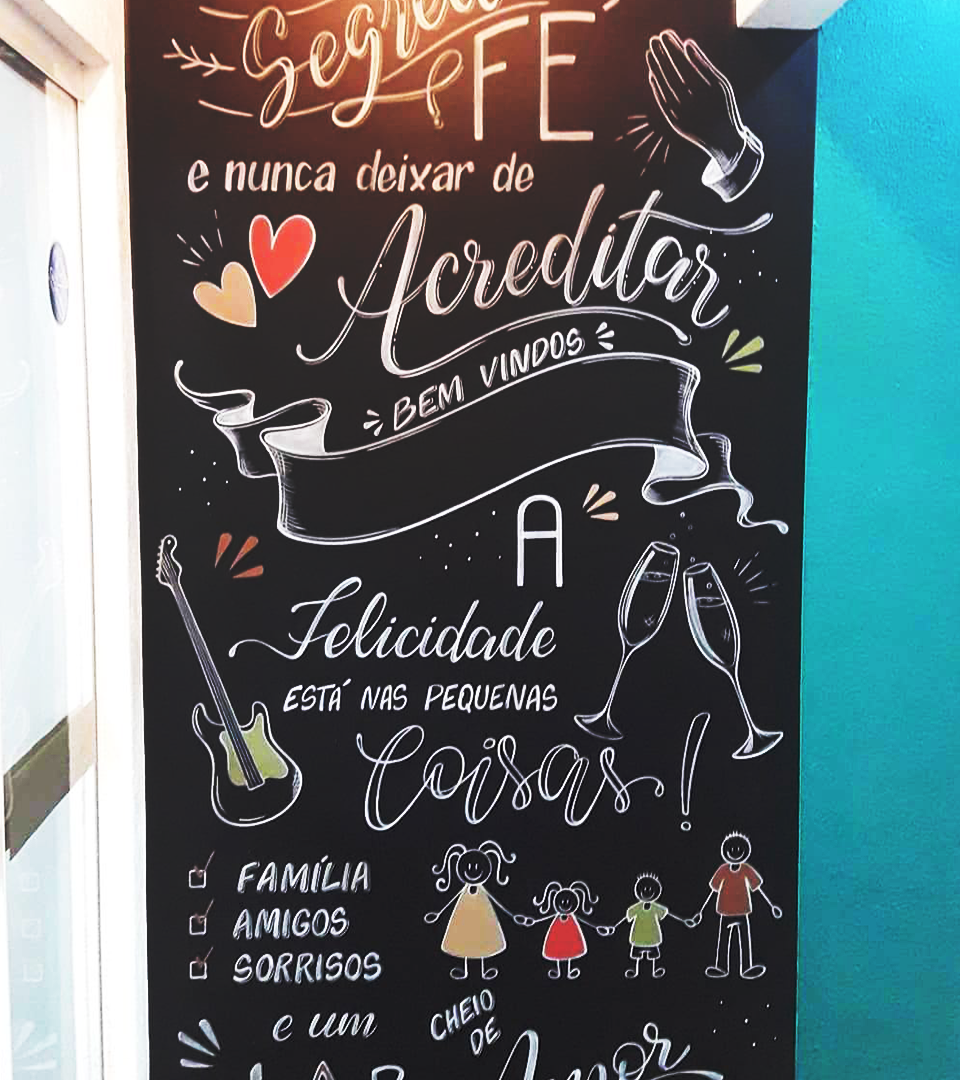 Segredo
FÉ
e nunca deixar de
Acreditar
BEM VINDOS
A
Felicidade
ESTÁ NAS PEQUENAS
Coisas!
FAMÍLIA
AMIGOS
SORRISOS
e um
CHEIO
DE
Amor